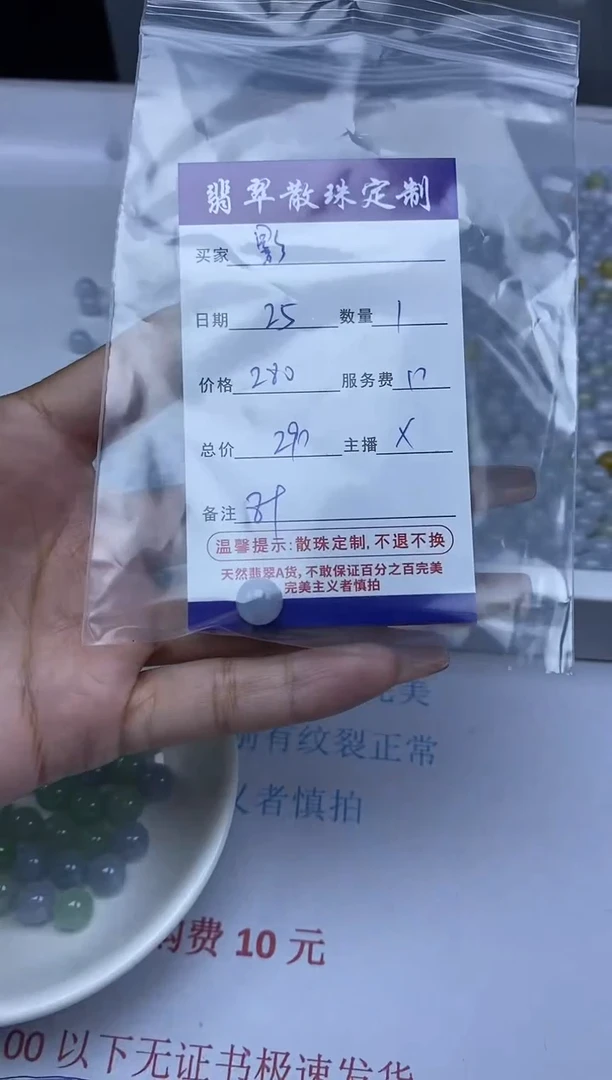 翡翠散珠定制
买家 影
日期 25 数量 1
价格 280 服务费 10
总价 290 主播 X
备注
温馨提示:散珠定制,不退不换
天然翡翠A货,不敢保证百分之百完美
完美主义者慎拍
美
有纹裂正常
义者慎拍
费 10 元
00 以下无证书极速发货